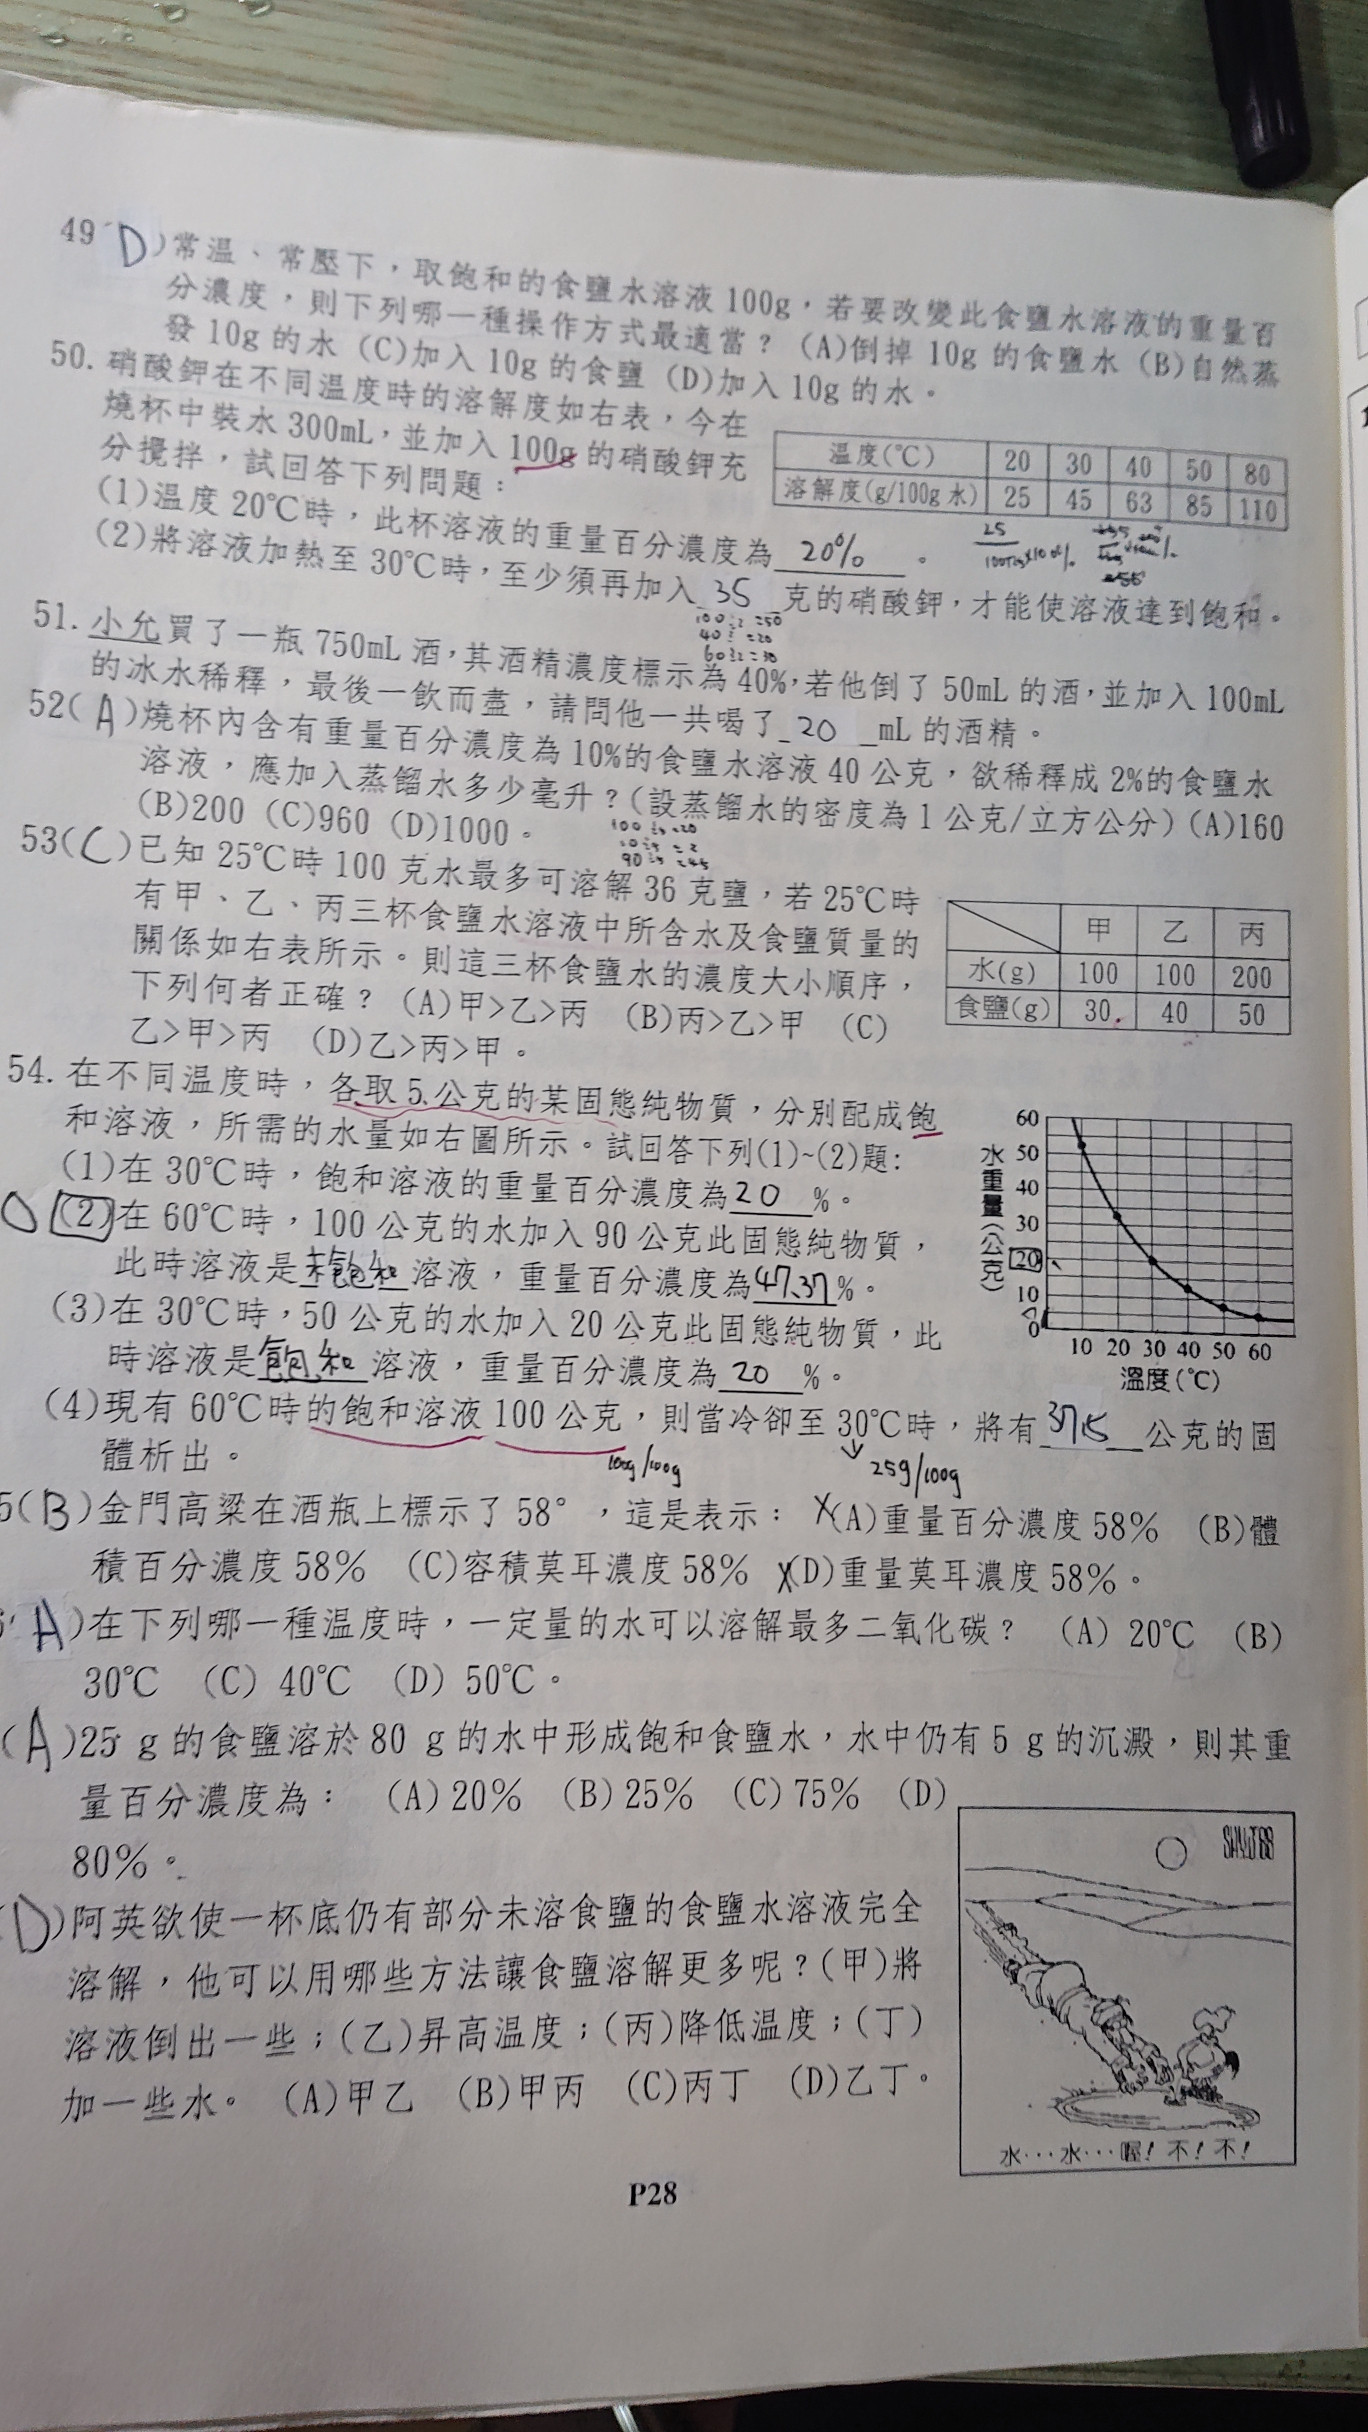 49(D)常温、常壓下，取飽和的食鹽水溶液100g，若要改變此食鹽水溶液的重量百
分濃度，則下列哪一種操作方式最適當？ (A)倒掉10g的食鹽水 (B)自然蒸
發10g的水 (C)加入10g的食鹽 (D)加入10g的水。
50. 硝酸鉀在不同温度時的溶解度如右表，今在
燒杯中裝水300mL，並加入100g的硝酸鉀充
分攪拌，試回答下列問題：
温度(℃) 20 30 40 50 80
溶解度(g/100g水) 25 45 63 85 110
(1)温度20℃時，此杯溶液的重量百分濃度為 20% 。
(2)將溶液加熱至30℃時，至少須再加入 35 克的硝酸鉀，才能使溶液達到飽和。
100÷2=50
40÷2=20
60÷2=30
51. 小允買了一瓶750mL酒，其酒精濃度標示為40%，若他倒了50mL的酒，並加入100mL
的冰水稀釋，最後一飲而盡，請問他一共喝了 20 mL的酒精。
52(A)燒杯內含有重量百分濃度為10%的食鹽水溶液40公克，欲稀釋成2%的食鹽水
溶液，應加入蒸餾水多少毫升？(設蒸餾水的密度為1公克/立方公分) (A)160
(B)200 (C)960 (D)1000。
53(C)已知25℃時100克水最多可溶解36克鹽，若25℃時
有甲、乙、丙三杯食鹽水溶液中所含水及食鹽質量的
關係如右表所示。則這三杯食鹽水的濃度大小順序，
下列何者正確？ (A)甲>乙>丙 (B)丙>乙>甲 (C)
乙>甲>丙 (D)乙>丙>甲。
甲 乙 丙
水(g) 100 100 200
食鹽(g) 30 40 50
54. 在不同温度時，各取5公克的某固態純物質，分別配成飽
和溶液，所需的水量如右圖所示。試回答下列(1)~(2)題:
(1)在30℃時，飽和溶液的重量百分濃度為 20 %。
(2)在60℃時，100公克的水加入90公克此固態純物質，
此時溶液是 未飽和 溶液，重量百分濃度為 47.37 %。
(3)在30℃時，50公克的水加入20公克此固態純物質，此
時溶液是 飽和 溶液，重量百分濃度為 20 %。
水重量(公克)
60
50
40
30
20
10
0
10 20 30 40 50 60
溫度(℃)
(4)現有60℃時的飽和溶液100公克，則當冷卻至30℃時，將有 37.5 公克的固
體析出。
100g/100g 25g/100g
5(B)金門高粱在酒瓶上標示了58°，這是表示： (A)重量百分濃度58% (B)體
積百分濃度58% (C)容積莫耳濃度58% (D)重量莫耳濃度58%。
A)在下列哪一種温度時，一定量的水可以溶解最多二氧化碳？ (A) 20℃ (B)
30℃ (C) 40℃ (D) 50℃。
(A)25 g的食鹽溶於80 g的水中形成飽和食鹽水，水中仍有5 g的沉澱，則其重
量百分濃度為： (A)20% (B)25% (C)75% (D)
80%。
(D)阿英欲使一杯底仍有部分未溶食鹽的食鹽水溶液完全
溶解，他可以用哪些方法讓食鹽溶解更多呢？(甲)將
溶液倒出一些；(乙)昇高温度；(丙)降低温度；(丁)
加一些水。 (A)甲乙 (B)甲丙 (C)丙丁 (D)乙丁。
水…水…喔！不！不！
P28